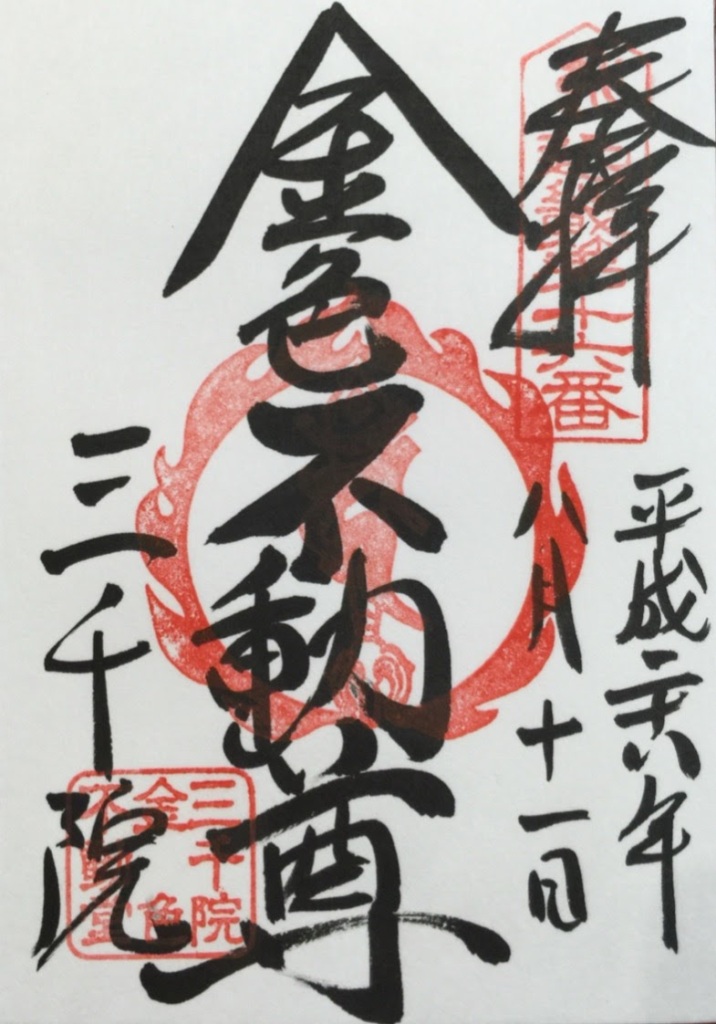 奉拝
第十六番
平成二十八年
八月十一日
金色不動尊
三千院
三千院
金色
不動堂